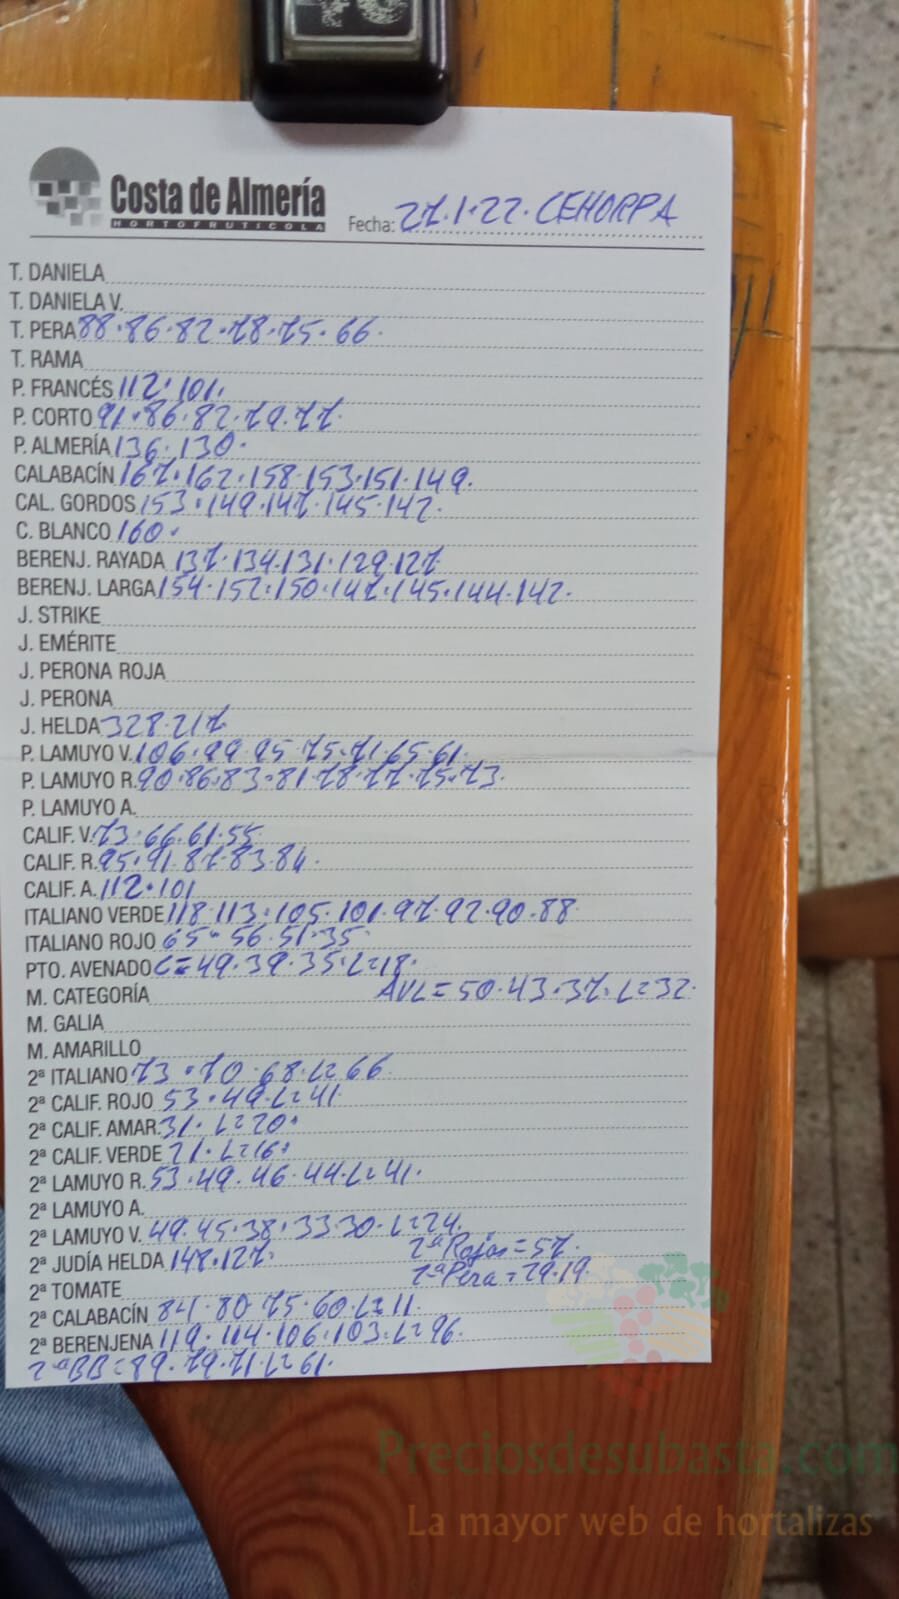 Costa de Almería
HORTOFRUTICOLA
Fecha: 27.1.22. CEHORPA
T. DANIELA
T. DANIELA V.
T. PERA 88.86.82.78.75.66.
T. RAMA
P. FRANCÉS 112.101.
P. CORTO 91.86.82.79.77.
P. ALMERÍA 136.130.
CALABACÍN 167.162.158.153.151.149.
CAL. GORDOS 153.149.147.145.142.
C. BLANCO 160.
BERENJ. RAYADA 137.134.131.129.127
BERENJ. LARGA 154.152.150.147.145.144.142.
J. STRIKE
J. EMÉRITE
J. PERONA ROJA
J. PERONA
J. HELDA 328.217
P. LAMUYO V. 106.99.95.75.71.65.61.
P. LAMUYO R. 90.86.83.81.78.77.75.73.
P. LAMUYO A.
CALIF. V. 73.66.61.55.
CALIF. R. 95.91.87.83.84.
CALIF. A. 112.101
ITALIANO VERDE 118.113.105.101.97.92.90.88.
ITALIANO ROJO 65.56.51.35.
PTO. AVENADO C=49.39.35.L=18.
M. CATEGORÍA AVL=50.43.37.L=32.
M. GALIA
M. AMARILLO
2ª ITALIANO 73.70.68.L=66
2ª CALIF. ROJO 53.49.L=41.
2ª CALIF. AMAR. 31.L=20.
2ª CALIF. VERDE 21.L=16.
2ª LAMUYO R. 53.49.46.44.L=41.
2ª LAMUYO A.
2ª LAMUYO V. 49.45.38.33.30.L=24.
2ª JUDÍA HELDA 147.127. 2ªRojos=57.
2ª TOMATE 2ªPera=29.19.
2ª CALABACÍN 84.80.75.60.L=11.
2ª BERENJENA 119.114.106.103.L=96.
2ªBB=89.79.71.L=61.
Preciosdesubasta.com
La mayor web de hortalizas